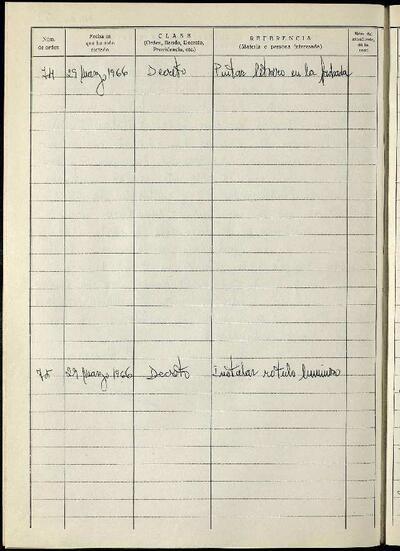 Núm. de orden
Fecha en que ha sido dictada
CLASE
(Orden, Bando, Decreto, Providencia, etc.)
REFERENCIA
(Materia e persona interesada)
74 29 marzo 1966 Decreto Pintar letrero en la fachada
75 29 marzo 1966 Decreto Instalar rotulo luminoso